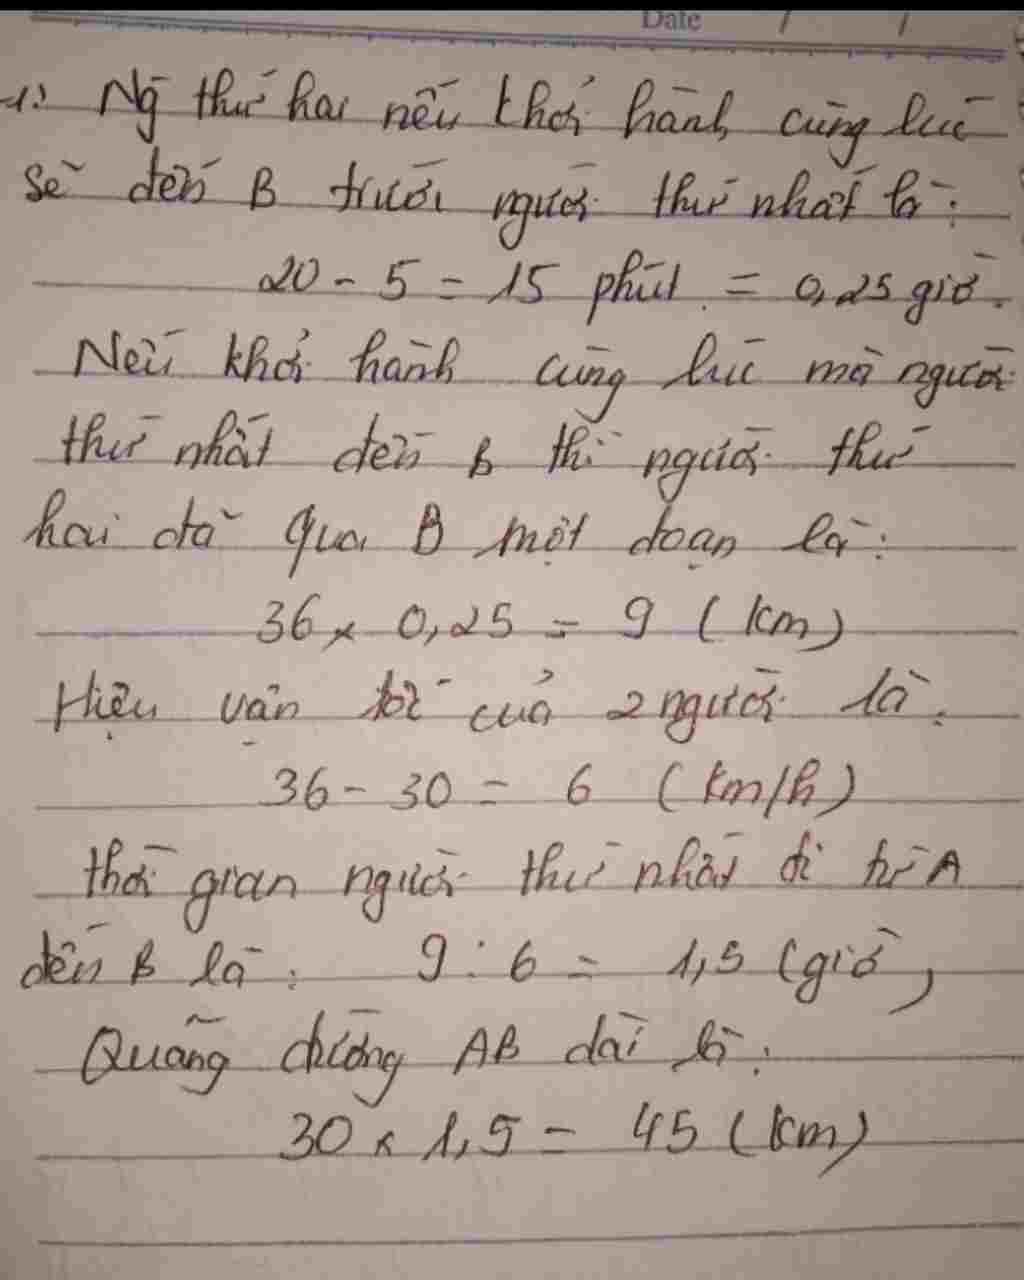 Date / /
1: Ng thứ hai nếu khởi hành cùng lúc
sẽ đến B trước người thứ nhất là:
20 - 5 = 15 phút = 0,25 giờ.
Nếu khởi hành cùng lúc mà người
thứ nhất đến B thì người thứ
hai đã qua B một đoạn là:
36 x 0,25 = 9 (km)
Hiệu vận tốc của 2 người là:
36 - 30 = 6 (km/h)
thời gian người thứ nhất đi từ A
đến B là: 9 : 6 = 1,5 (giờ)
Quãng đường AB dài là:
30 x 1,5 = 45 (km)